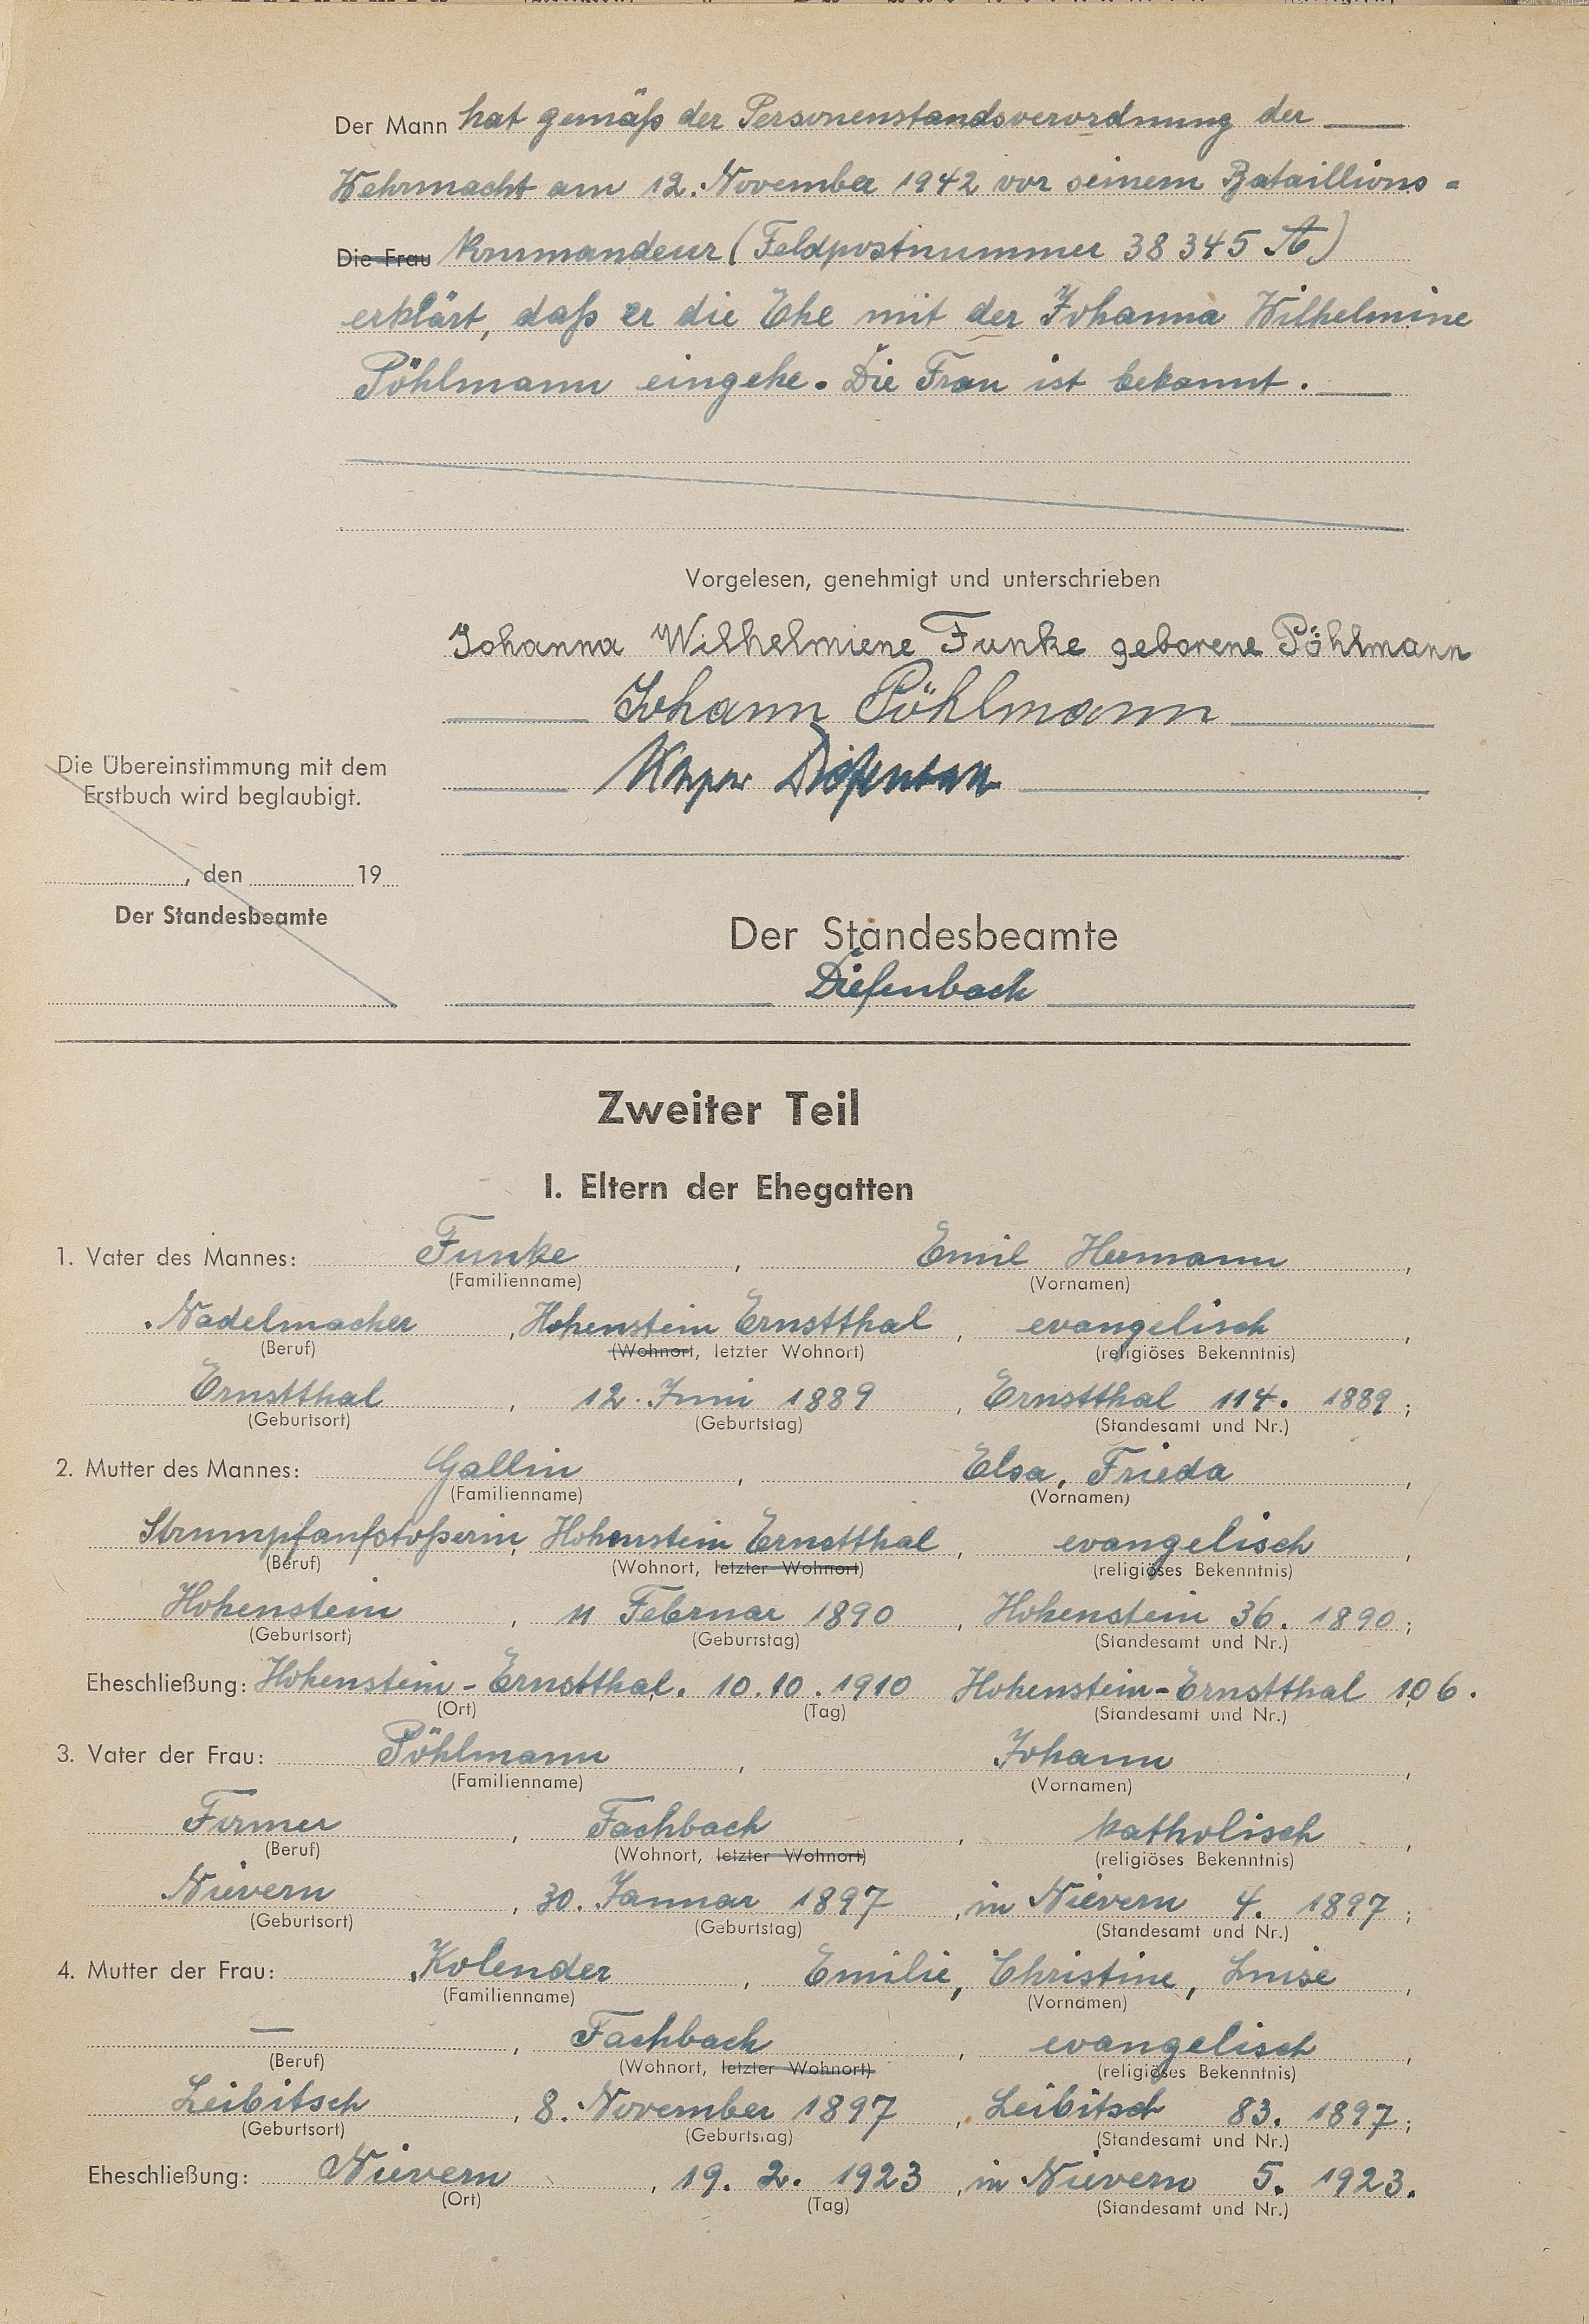 Der Mann hat gemäß der Personenstandsverordnung der
Wehrmacht am 12. November 1942 vor seinem Bataillions-
Die Frau Kommandeur (Feldpostnummer 38345 A)
erklärt, daß er die Ehe mit der Johanna Wilhelmine
Pöhlmann eingehe. Die Frau ist bekannt.
Vorgelesen, genehmigt und unterschrieben
Johanna Wilhelmiene Funke geborene Pöhlmann
Johann Pöhlmann
Die Übereinstimmung mit dem
Erstbuch wird beglaubigt.
, den 19
Der Standesbeamte
Der Standesbeamte
Diefenbach
Zweiter Teil
I. Eltern der Ehegatten
1. Vater des Mannes: Funke, Emil Hermann,
(Familienname) (Vornamen)
Nadelmacher, Hohenstein Ernstthal, evangelisch,
(Beruf) (Wohnort, letzter Wohnort) (religiöses Bekenntnis)
Ernstthal, 12. Juni 1889, Ernstthal 114. 1889;
(Geburtsort) (Geburtstag) (Standesamt und Nr.)
2. Mutter des Mannes: Gallin, Elsa, Frieda,
(Familienname) (Vornamen)
Strumpfaufstoßerin, Hohenstein Ernstthal, evangelisch,
(Beruf) (Wohnort, letzter Wohnort) (religiöses Bekenntnis)
Hohenstein, 11 Februar 1890, Hohenstein 36. 1890;
(Geburtsort) (Geburtstag) (Standesamt und Nr.)
Eheschließung: Hohenstein-Ernstthal, 10.10.1910 Hohenstein-Ernstthal 106.
(Ort) (Tag) (Standesamt und Nr.)
3. Vater der Frau: Pöhlmann, Johann,
(Familienname) (Vornamen)
Former, Fachbach, katholisch,
(Beruf) (Wohnort, letzter Wohnort) (religiöses Bekenntnis)
Nievern, 30. Januar 1897, in Nievern 4. 1897;
(Geburtsort) (Geburtstag) (Standesamt und Nr.)
4. Mutter der Frau: Kolender, Emilie, Christine, Luise,
(Familienname) (Vornamen)
—, Fachbach, evangelisch,
(Beruf) (Wohnort, letzter Wohnort) (religiöses Bekenntnis)
Leibitsch, 8. November 1897, Leibitsch 83. 1897;
(Geburtsort) (Geburtstag) (Standesamt und Nr.)
Eheschließung: Nievern, 19. 2. 1923, in Nievern 5. 1923.
(Ort) (Tag) (Standesamt und Nr.)